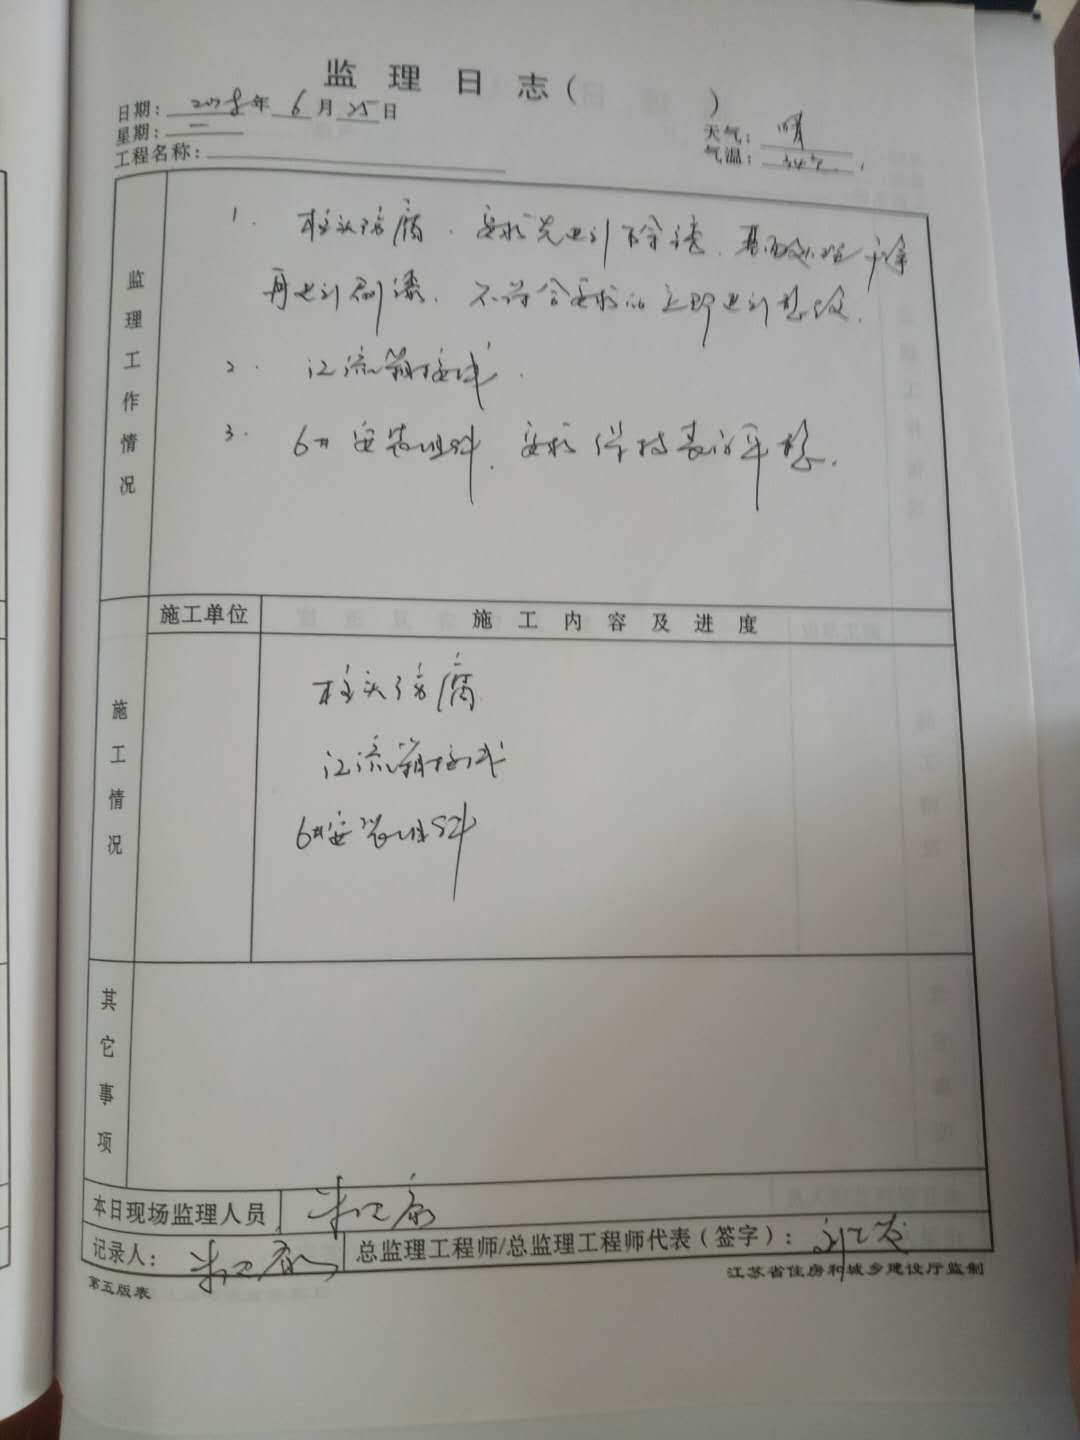 监理日志( )
日期: 2018年 6月 25日
星期: 一
天气: 晴
工程名称:
气温: 34℃
监理工作情况
1. 桩头防腐，要求先进行除锈，基面处理干净
再进行刷漆，不符合要求的立即进行整改。
2. 汇流箱接线.
3. 6# 安装组件，要求保持表面平整.
施工单位 施工内容及进度
施工情况
桩头防腐
汇流箱接线
6#安装组件
其它事项
本日现场监理人员
记录人: 总监理工程师/总监理工程师代表(签字):
第五版表 江苏省住房和城乡建设厅监制